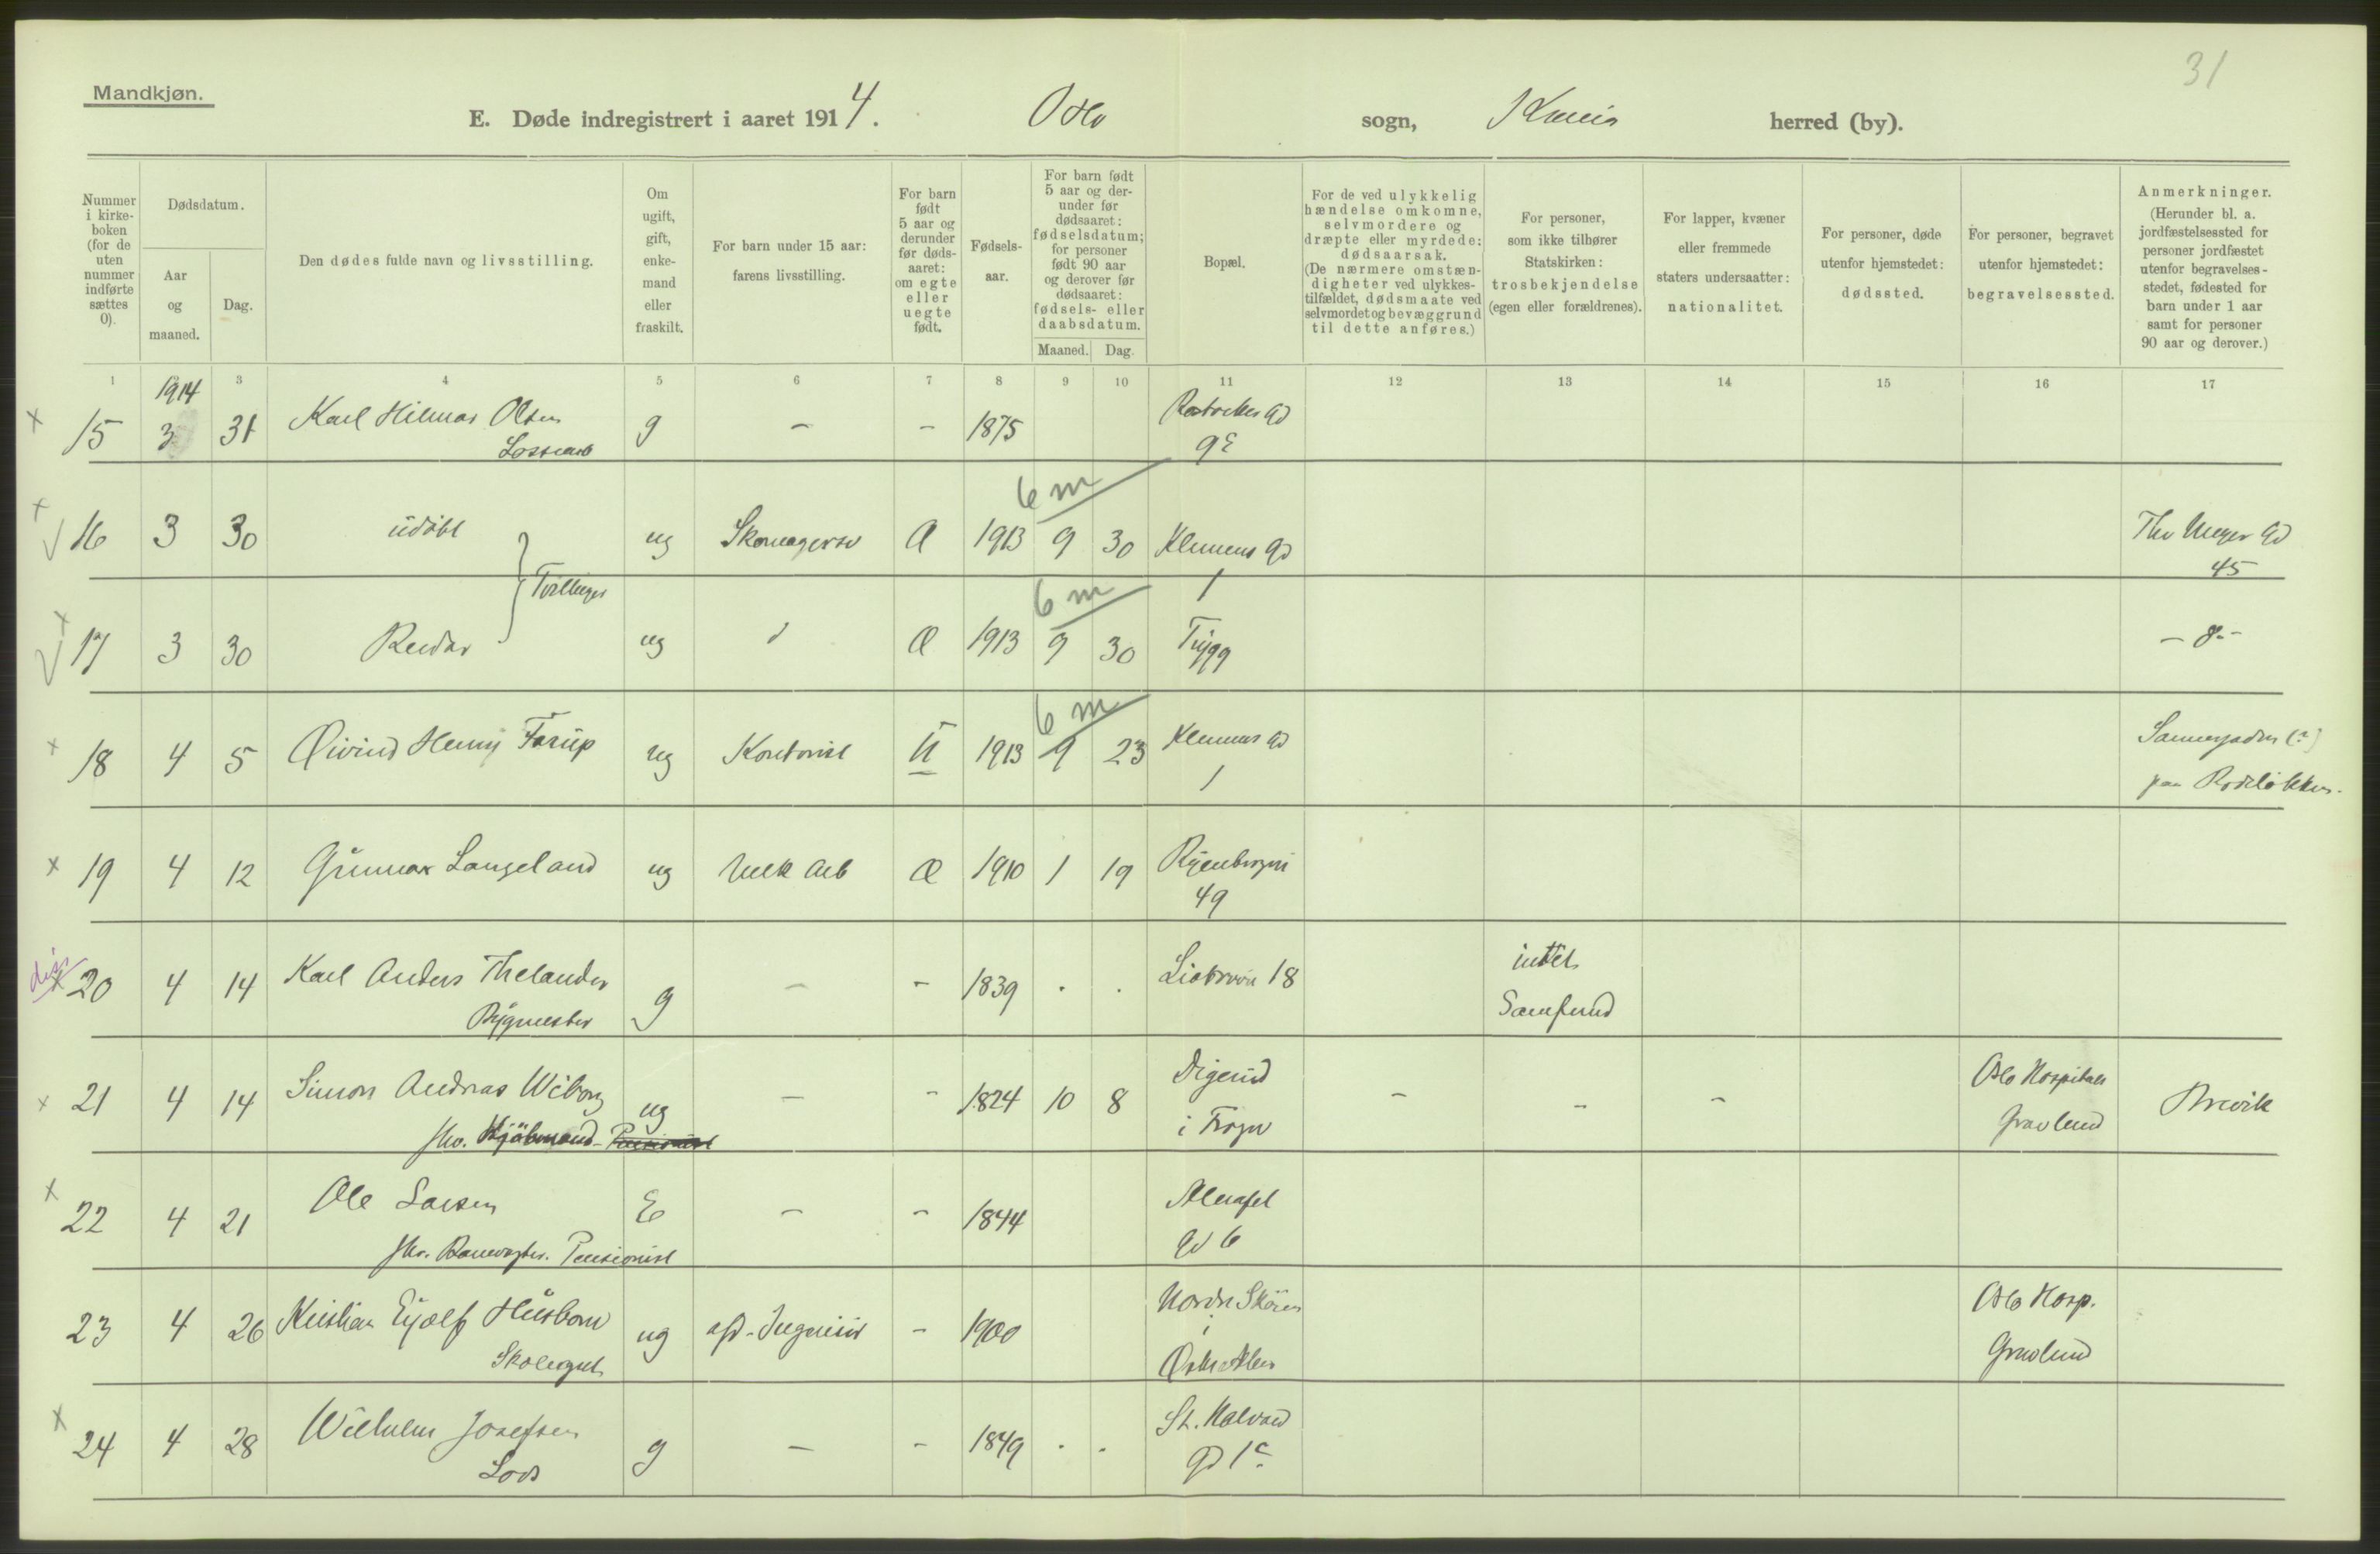 31
Mandkjøn.
E. Døde indregistrert i aaret 1914. Oslo sogn, Kr.ania herred (by).
Nummer i kirke-boken (for de uten nummer indførte sættes 0).
Dødsdatum.
Aar og maaned.
Dag.
Den dødes fulde navn og livsstilling.
Om ugift, gift, enke-mand eller fraskilt.
For barn under 15 aar: farens livsstilling.
For barn født 5 aar og derunder før døds-aaret: om egte eller uegte født.
Fødsels-aar.
For barn født 5 aar og der-under før dødsaaret: fødselsdatum; for personer født 90 aar og derover før dødsaaret: fødsels- eller daabsdatum.
Maaned. Dag.
Bopæl.
For de ved ulykkelig hændelse omkomne, selvmordere og dræpte eller myrdede: dødsaarsak. (De nærmere omstæn-digheter ved ulykkes-tilfældet, dødsmaate ved selvmordet og bevæggrund til dette anføres.)
For personer, som ikke tilhører Statskirken: trosbekjendelse (egen eller forældrenes).
For lapper, kvæner eller fremmede staters undersaatter: nationalitet.
For personer, døde utenfor hjemstedet: dødssted.
For personer, begravet utenfor hjemstedet: begravelsessted.
Anmerkninger. (Herunder bl. a. jordfæstelsessted for personer jordfæstet utenfor begravelses-stedet, fødested for barn under 1 aar samt for personer 90 aar og derover.)
1 3 4 5 6 7 8 9 10 11 12 13 14 15 16 17
1914
x 15 3 31 Karl Hilmar Olsen g – – 1875
Lossearb 9 E
6 m
x 16 3 30 udøbt ug Skomagersv Æ 1913 9 30 Klemens Gd Thv Meyer Gd
1 45
} Tvillinger
6 m
x 17 3 30 Reidar ug Æ 1913 9 30 Trygg
6 m
x 18 4 5 Øivind Henry Forup ug Kontorist U 1913 9 23 Klemens Gd Sannergaden (?)
1 paa Rodeløkken.
x 19 4 12 Gunnar Langeland ug Æ 1910 1 19 Ryenbergvei
49
x 20 4 14 Karl Anders Thelander g – – 1839 . . 18 intet
Bygmester Samfund
x 21 4 14 Simon Andreas Wiborg ug – – 1824 10 8 Digerud – – – Oslo Hospitals Brevik
fhv. Kjøbmand – Pensionist i Frogn Gravlund
x 22 4 21 Ole Larsen E – – 1844
fhv. Banevogter. Pensionist Gd 6
23 4 26 Kristian Eyolf Husborn ug afd. Ingeniør – 1900 Nordre Skøien Oslo Hosp.
Skolegut i Østre Aker Gravlund
x 24 4 28 Wilhelm Josefsen g – – 1849 . . St. Halvard
Lods Gd 1 c